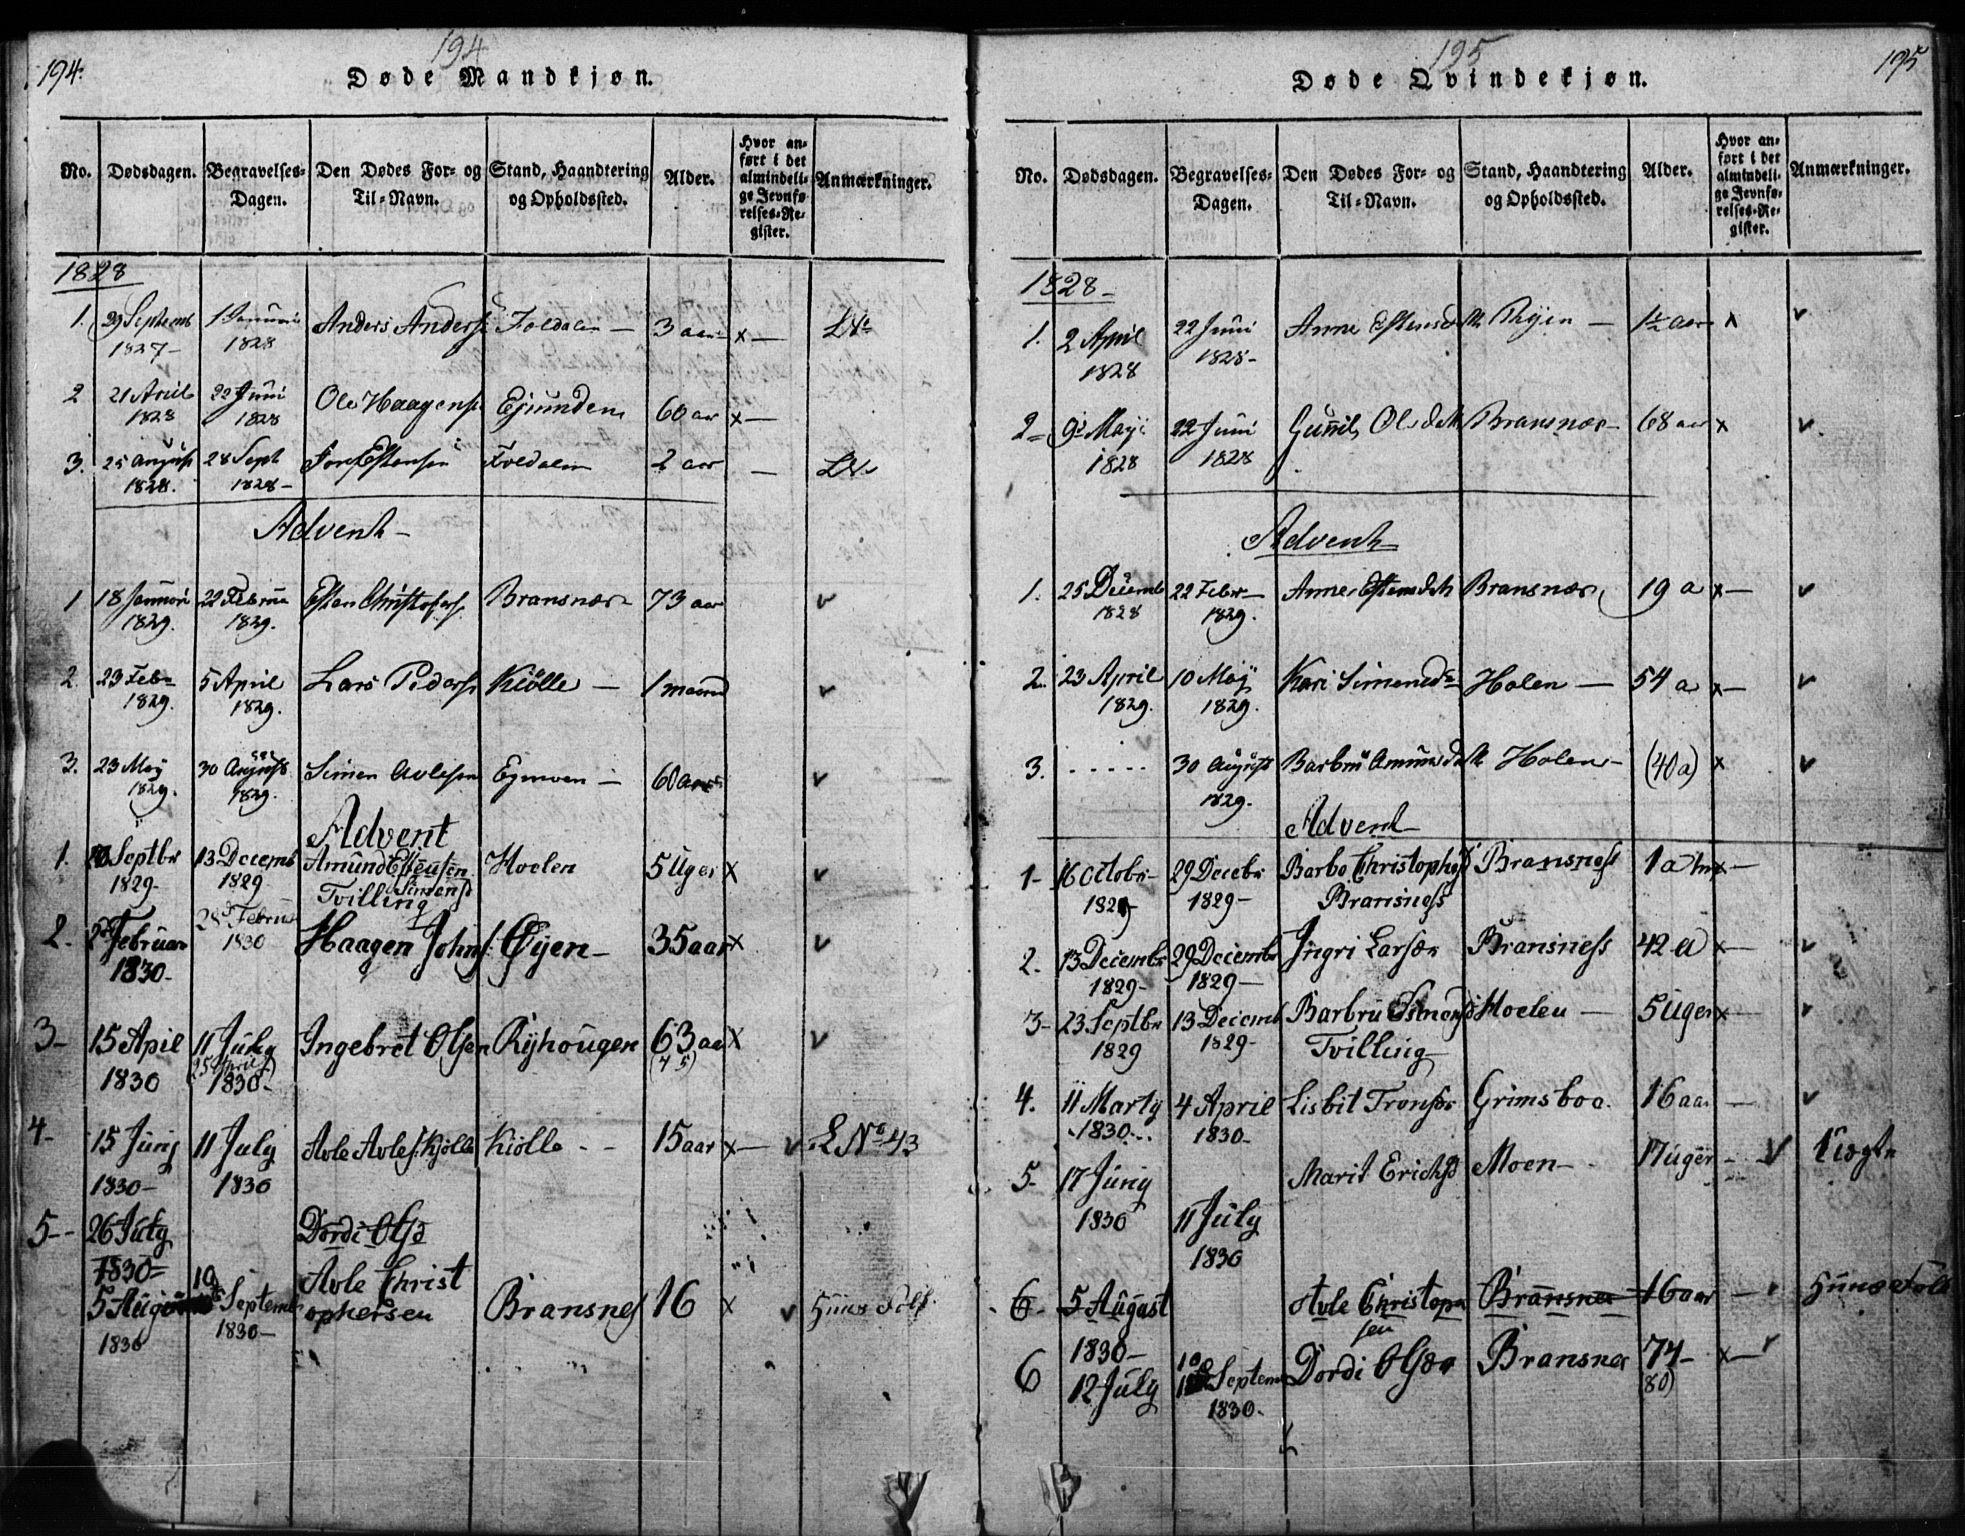 194.
194
Døde Mandkjøn.
No. Dødsdagen. Begravelses- Dagen. Den Dødes For- og Til-Navn. Stand, Haandtering og Opholdssted. Alder. Hvor anført i det almindelige Jevnførelses-Register. Anmærkninger.
1828
1. 29 Septemb 1827 1 Januari 1828 Anders Anders Foldalen 3 aar x
2 21 April 1828 22 Juni 1828 Ole Haagens 60 aar x
3. 25 August 1828. 28 Sept 1828 Estensen Foldalen 2 aar
Advent
1 18 Januari 1829. 22 Februa 1829. Esten Christofers. Bransnæs 73 aar v
2. 23 Febr 1829. 5 April 1829. Lars Peders Kiölle 1 maaned v
3. 23 May 1829. 30 August 1829. Simen Avlesen Egmoen 60 aar v
Advent
1. Septbr 1829 13 Decemb 1829 Amund Estensen Simens Tvilling Hoelen 5 Uger x v
2. Februar 1830 28 Februa 1830 Haagen Johns. Öyen 35 aar x v
3 15 Apil 1830 11 July (25 April) 1830 Ingebret Olsen Ryhougen 63 aar (45) x v
4 15 Juny 1830 11 July 1830 Avle Avles. Kjölle Kiölle 15 aar x v L No 43
5 26 July 1830 Dordi Olsd
5 August 1830 10 Septemb 1830 Avle Christophersen Bransnes 16 x v
195
195
Døde Qvindekjøn.
No. Dødsdagen. Begravelses- Dagen. Den Dødes For- og Til-Navn. Stand, Haandtering og Opholdssted. Alder. Hvor anført i det almindelige Jevnførelses-Register. Anmærkninger.
1828
1. 2 April 1828 22 Juni 1828 Anne Estensdtr 1½ aar x v
2 9 Mayi 1828 22 Juni 1828 Gunnil Olsdtr Bransnæs 68 aar x v
Advent
1. 25 Decemb 1828 22 Febr 1829. Anne Estensdtr Bransnæs 19 a x v
2. 23 April 1829. 10 May 1829. Kari Simensd Holen 54 a x v
3. ..... 30 August 1829. Barbru Amunsdtr Holen (40 a) x v
Advent
1 16 Octobr 1829 29 Decebr 1829 Barbo Christophsd Bransness Bransness 1 a x
2. 13 Decembr 1829 29 Decembr 1829 Ingri Larsdr Bransness 42 a x v
3 23 Septbr 1829 13 Decemb 1829 Barbru Simensd Tvilling Hoelen 5 Uger x v
4. 11 Marty 1830 4 April 1830 Lisbit Tronsdr Grimsboo 16 aar v
5 17 Juny 1830 11 July 1830 Marit Erichsd Moen 17 uger v
6 5 August 1830 Avle Christopersen Bransnes 16 aar
6 12 July 10 Septemb 1830 Dordi Olsdr Bransnes 74 (80) x v